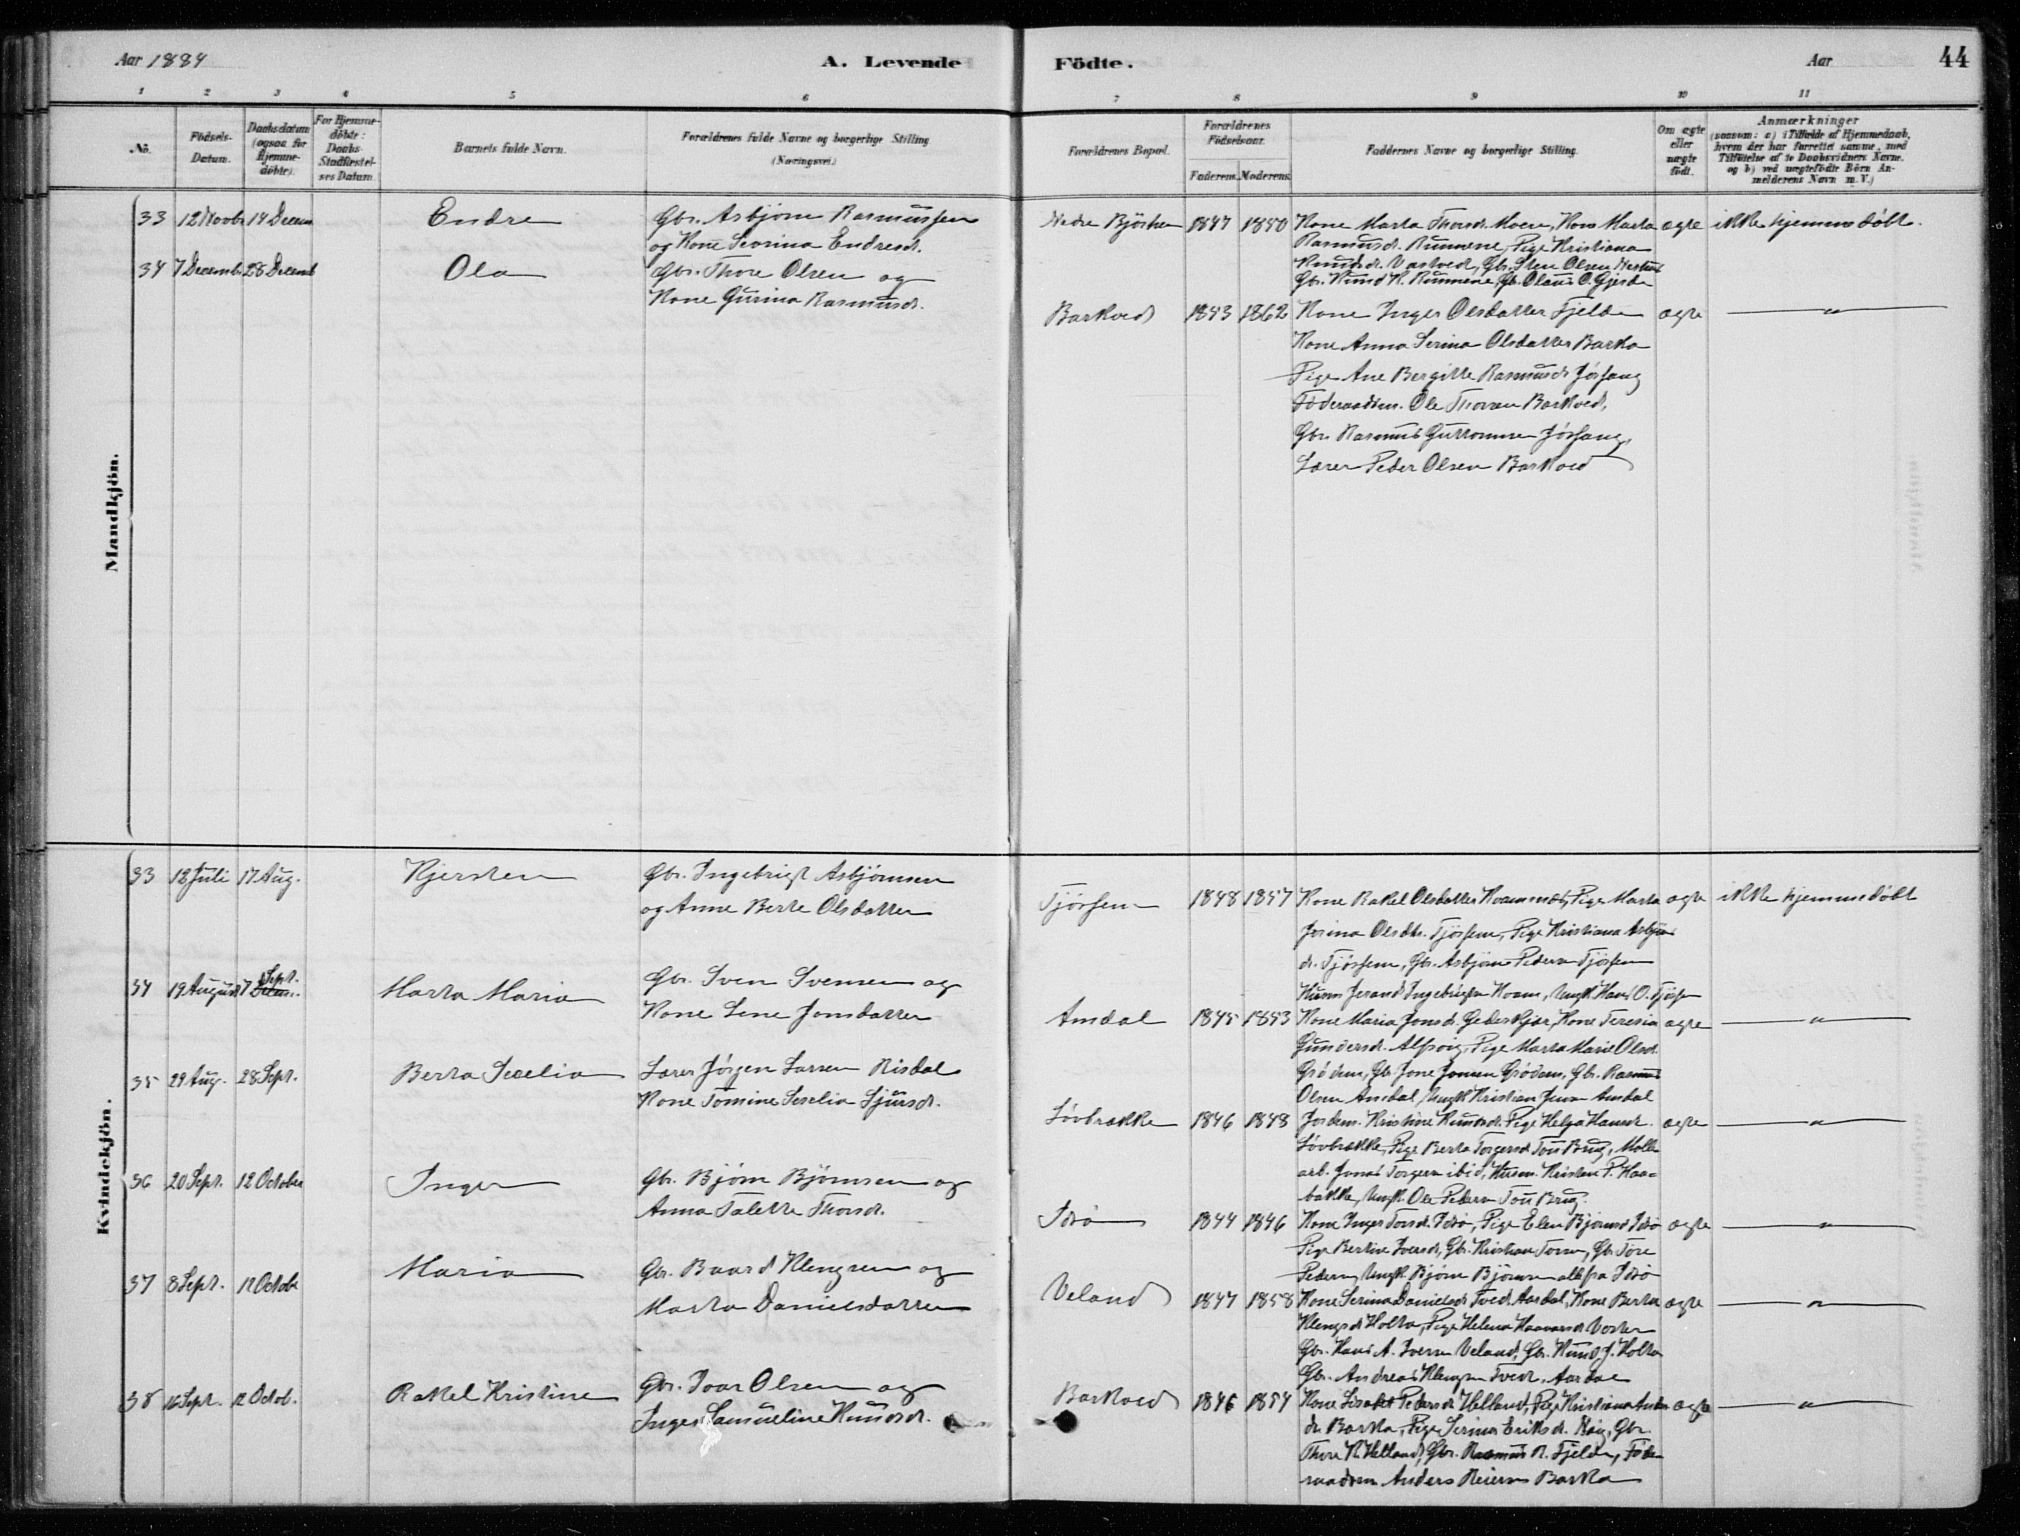 Aar 1884
A. Levende
Födte.
Aar
44
1 2 3 4 5 6 7 8 9 10 11
No.
Födsels-
Datum.
Daabsdatum
(ogsaa for
Hjemme-
döbte).
For Hjemme-
döbte:
Daabs-
Stadfæstel-
ses Datum.
Barnets fulde Navn.
Forældrenes fulde Navne og borgerlige Stilling
(Næringsvei.)
Forældrenes Bopæl.
Forældrenes
Födselsaar.
Faderens. Moderens.
Faddernes Navne og borgerlige Stilling.
Om ægte
eller
uægte
födt.
Anmærkninger
(saasom: a) i Tilfælde af Hjemmedaab,
hvem der har forrettet samme, med
Tilföielse af to Daabsvidners Navne,
og b) ved uægtefödte Börn An-
melderens Navn m. V.)
Mandkjön.
33 12 Novbr 14 Decem Endre
Gbr. Asbjörn Rasmussen
og Kone Severina Endresd.
Nedre 1847 1850
Kone Marta Thorsd. Moen, Kone Marta
Rasmusd. Runnene, Pige Kristiana
Knudsd. Vastved, Gbr. Sten Olsen
Gbr. Knud K. Runnene, Gb. Olaus O. Gjerde
ægte ikke hjemmedöbt.
34 7 Decemb 28 Decemb Ola
Gbr. Thore Olsen og
Kone Gurina Rasmusd.
Barkved 1853 1862
Kone Inger Olsdatter Fjelde
Kone Anna Serina Olsdatter Barka
Pige Ane Bergitte Rasmusd. Jösang
Föderaadsm. Ole Thorsen Barkved,
Gbr. Rasmus Guttormsen Jösang,
Lærer Peder Olsen Barkved
ægte — " —
Kvindekjön.
33 18 Juli 17 Aug. Kjersten
Gbr. Ingebrigt Asbjörnsen
og Anne Berte Olsdatter
Tjössem 1848 1857
Kone Rakel Olsdatter Kvammet, Pige Marta
Josina Olsdtr. Tjössem, Pige Kristiana Asbjörns
dr. Tjössem, Gbr. Asbjörn Pedersen Tjössem
Husm. Ingebrigtsen Hoem, Ungk. Hans O. Tjössem
ægte ikke hjemmedöbt
34 19 August 7 Sept. Marta Maria
Gbr. Sven Svensen og
Kone Lene Jonsdatter
Amdal 1845 1853
Kone Maria Jonsd. Gedeskjær, Kone Teresia
Gundersd. Alsvig, Pige Marta Marie Olsd.
Grödem, Gb. Jone Jonsen Grödem, Gbr. Rasmus
Olsen Amdal, Ungk. Kristian Jensen Amdal
ægte — " —
35 29 Aug. 28 Sept. Berta Secelia
Lærer Jörgen Larsen Risdal
Kone Tomine Seselia Sjursd.
Lövbrække 1846 1848
Jordem. Kristine Knudsd. Pige Helga Hansd.
Lövbrække, Pige Berta Torgersd. Tou Brug, Mölle
arb. Jonas Torgersen ibid, Husm. Kristen P. Haa-
bakke, Ungk. Ole Pedersen Tou Brug.
ægte — " —
36 20 Sept. 12 October Inger
Gbr. Björn Björnsen og
Anna Talette Thorsd.
Idsö 1844 1846
Kone Inger Torsd. Idsö, Pige Elen Björnsd. Idsö
Pige Bertine Iversd., Gb. Kristian Torsen, Gb. Tore
Pedersen, Ungk. Björn Björnsen alle fra Idsö
ægte — " —
37 8 Sept. 12 Octobr Maria
Gbr. Baard Klengsen og
Marta Danielsdatter
Veland 1847 1858
Kone Serina Danielsd. Tved, Aardal, Kone Berta
Klengsd. Holta, Pige Helena Haavarsd. Voster
Gbr. Hans A. Iversen Veland, Gbr. Knud J. Holta
Gbr. Andreas Klengsen Tved, Aardal
ægte — " —
38 16 Sept. 12 Octob. Rakel Kristine
Gbr. Ivar Olsen og
Inger Samueline Knudsd.
Barkved 1846 1854
Kone Lisabet Pedersd. Helland, Pige Kristiana Anders
dr. Barka, Pige Serina Eriksd. Gbr.
Thore K. Helland, Gbr. Rasmus R. Fjelde, Föde-
raadsm Anders Reiersen Barka
ægte — " —